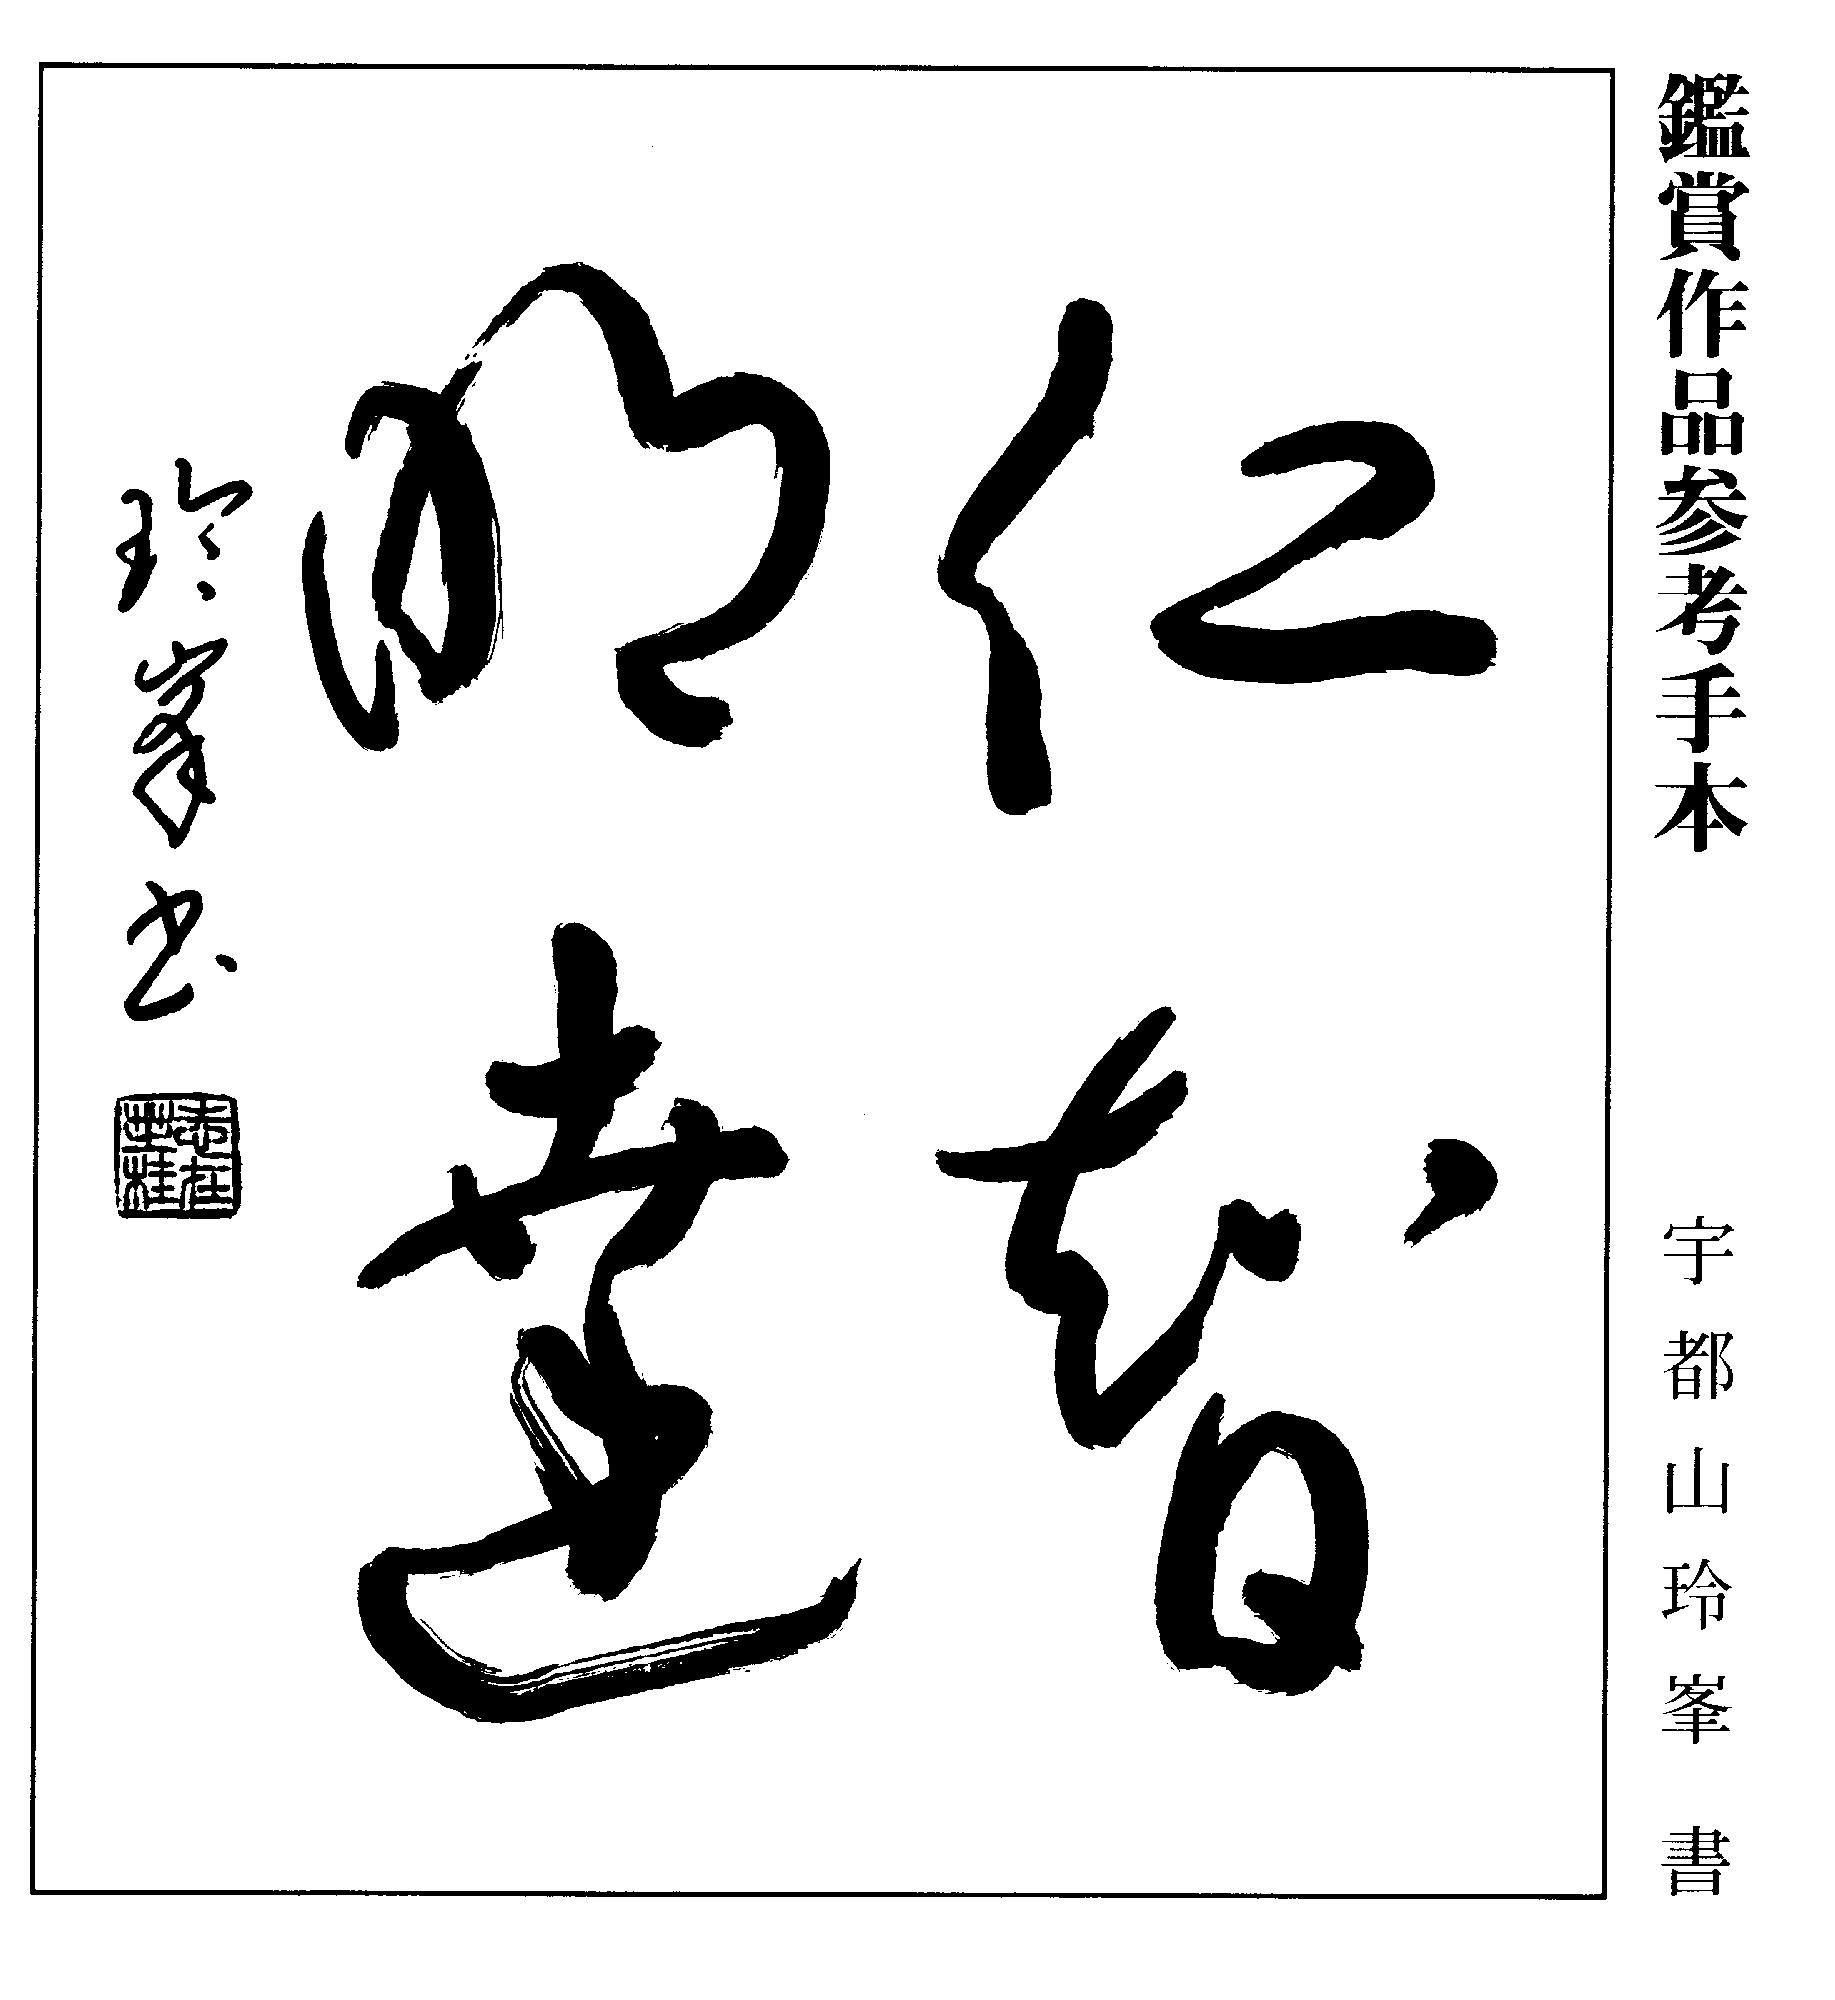 鑑賞作品参考手本
宇都山玲峯 書
仁智
明達
玲峯书